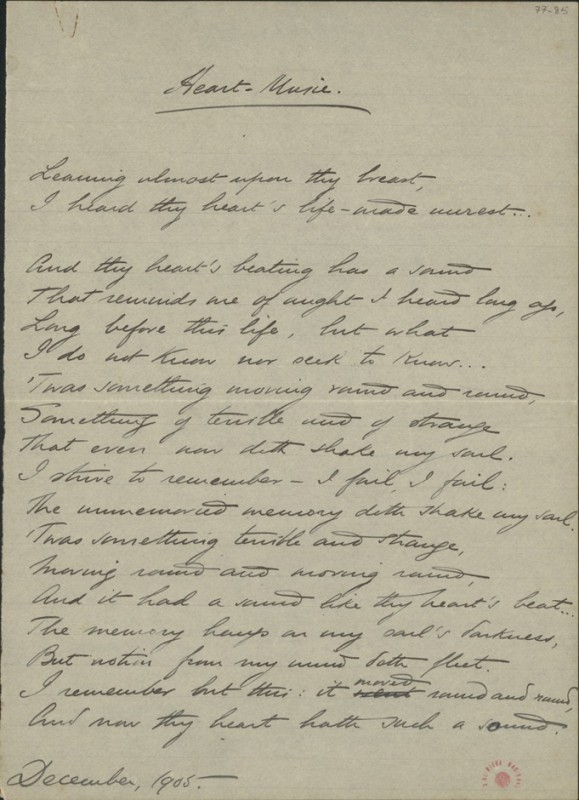 77-85
Heart-Music.
Leaning almost upon thy breast,
I heard thy heart's life-made unrest...
And thy heart's beating has a sound
That reminds me of aught I heard long ago,
Long before this life, but what
I do not know nor seek to know...
'Twas something moving round and round,
Something of terrible and of strange
That even now doth shake my soul.
I strive to remember — I fail, I fail:
The unmemoried memory doth shake my soul.
'Twas something terrible and strange,
Moving round and moving round,
And it had a sound like thy heart's beat...
The memory hangs on my soul's darkness,
But notion from my mind doth fleet.
moved
I remember but this: it went round and round,
And now thy heart hath such a sound.
December, 1905.